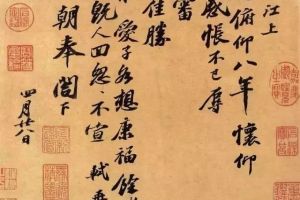 江上
俯仰八年懷仰
感悵不已辱
審
佳勝
愛子各想康福餘
既人回怱怱不宣軾再
朝奉閤下
四月廿八日